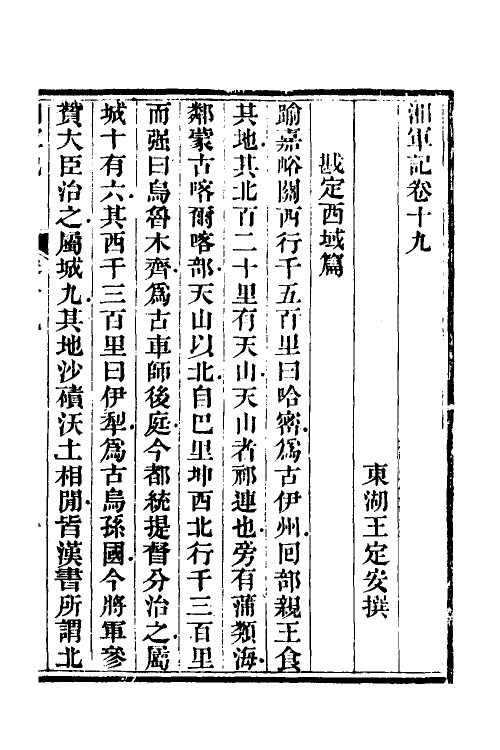 湘軍記卷十九
東湖王定安撰
戡定西域篇
踰嘉峪關西行千五百里曰哈密爲古伊州回部親王食
其地其北百二十里有天山天山者祁連也旁有蒲類海
鄰蒙古喀爾喀部天山以北自巴里坤西北行千三百里
而强曰烏魯木齊爲古車師後庭今都統提督分治之屬
城十有六其西千三百里曰伊犁爲古烏孫國今將軍參
贊大臣治之屬城九其地沙磧沃土相閒皆漢書所謂北